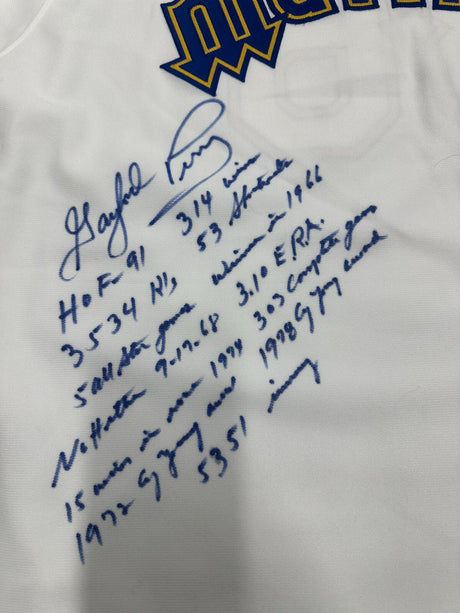 Gaylord Perry
HOF-91 314 wins
3534 K's 53 Shutouts
5 All Star games winner in 1966
No Hitter 9-17-68 3.10 E.R.A.
15 wins in row 1974 303 Complete games
1972 Cy Young award 1978 Cy Young award
5351 inning